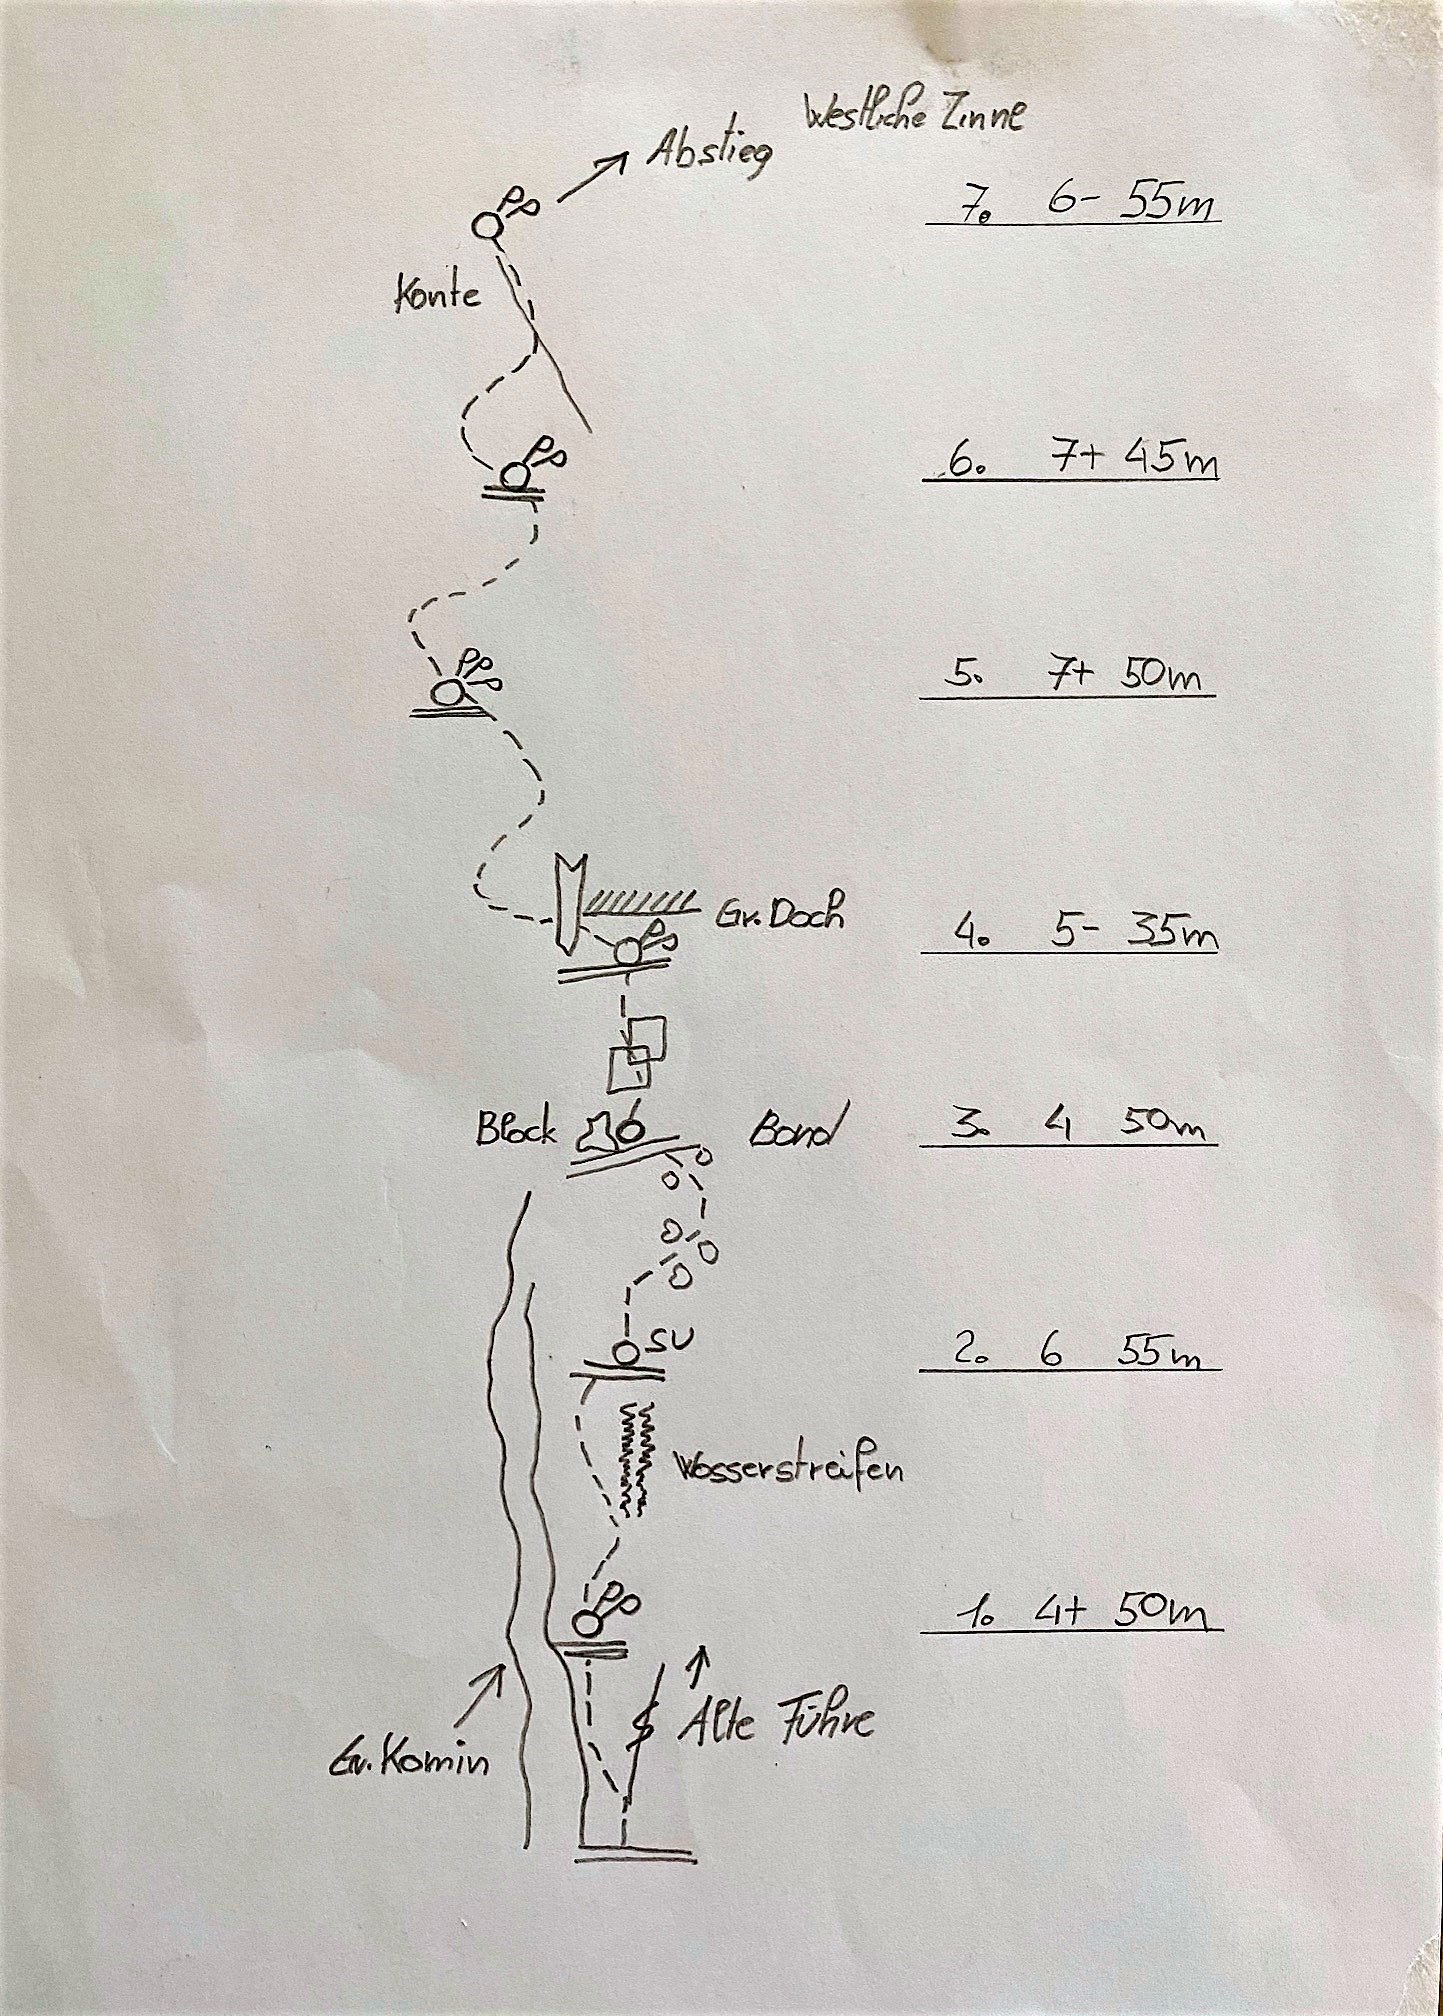 Westliche Zinne
Abstieg
7. 6- 55m
Kante
6. 7+ 45m
5. 7+ 50m
Gr. Dach
4. 5- 35m
Block
Band
3. 4 50m
SU
2. 6 55m
Wasserstreifen
1. 4+ 50m
Alte Führe
Gr. Kamin